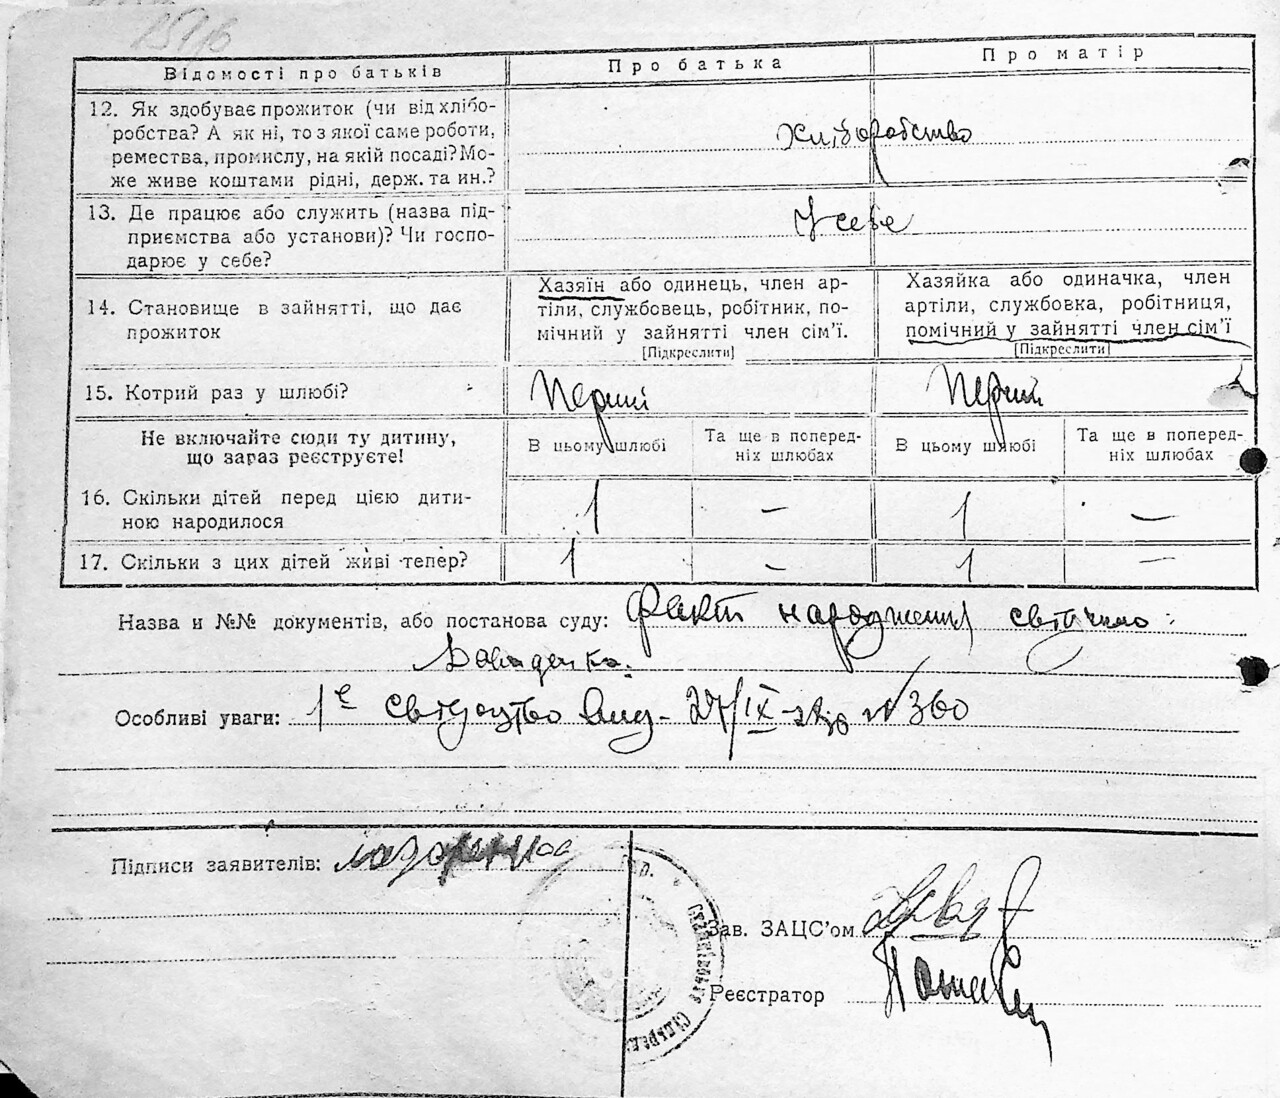 Відомості про батьків
Про батька
Про матір
12. Як здобуває прожиток (чи від хлібо-
робства? А як ні, то з якої саме роботи,
ремества, промислу, на якій посаді? Мо-
же живе коштами рідні, держ. та ин.?
хліборобство
13. Де працює або служить (назва під-
приємства або установи)? Чи госпо-
дарює у себе?
У себе
14. Становище в зайнятті, що дає
прожиток
Хазяїн або одинець, член ар-
тіли, службовець, робітник, по-
мічний у зайнятті член сім'ї.
[Підкреслити]
Хазяйка або одиначка, член
артіли, службовка, робітниця,
помічний у зайнятті член сім'ї
[Підкреслити]
15. Котрий раз у шлюбі?
Перший
Перший
Не включайте сюди ту дитину,
що зараз реєструєте!
В цьому шлюбі
Та ще в поперед-
ніх шлюбах
В цьому шлюбі
Та ще в поперед-
ніх шлюбах
16. Скільки дітей перед цією дити-
ною народилося
1
—
1
—
17. Скільки з цих дітей живі тепер?
1
—
1
—
Назва и №№ документів, або постанова суду: Факт народження
Особливі уваги: 1е свідоцтво вид. 27/IX № 360
Підписи заявителів:
Зав. ЗАЦС'ом
Реєстратор